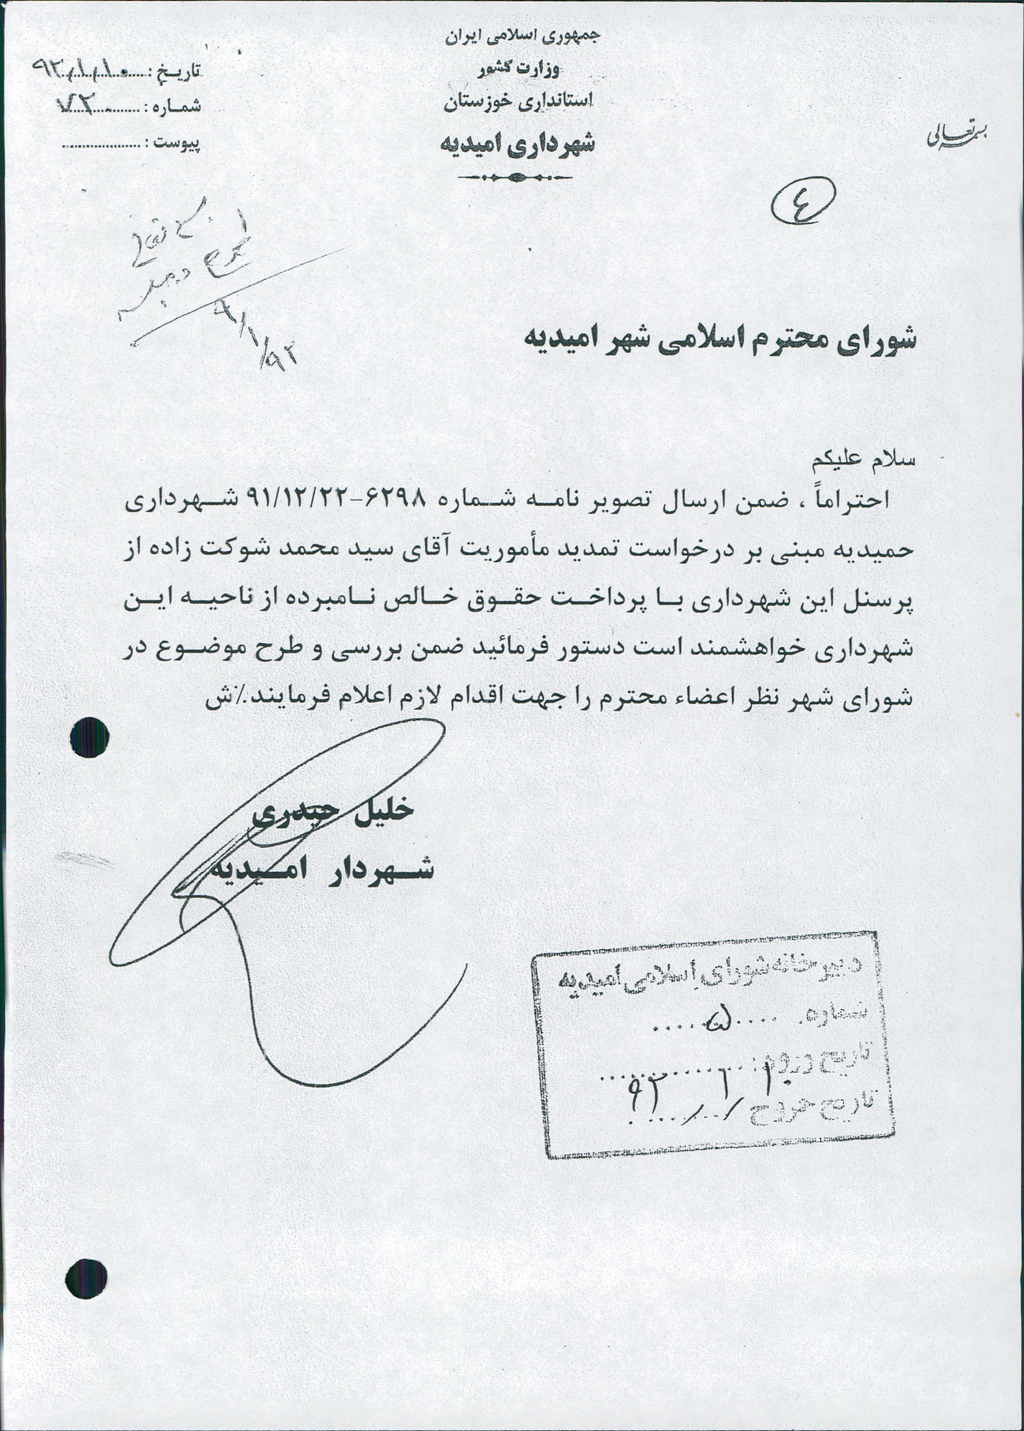 بسمه تعالی
جمهوری اسلامی ایران
وزارت کشور
استانداری خوزستان
شهرداری امیدیه
تاریخ : ۹۲/۱/۱۰
شماره : ۷۲
پیوست :
٤
۹۲/۱/
شورای محترم اسلامی شهر امیدیه
سلام علیکم
احتراماً ، ضمن ارسال تصویر نامه شماره ۶۲۹۸-۹۱/۱۲/۲۲ شهرداری
حمیدیه مبنی بر درخواست تمدید مأموریت آقای سید محمد شوکت زاده از
پرسنل این شهرداری با پرداخت حقوق خالص نامبرده از ناحیه این
شهرداری خواهشمند است دستور فرمائید ضمن بررسی و طرح موضوع در
شورای شهر نظر اعضاء محترم را جهت اقدام لازم اعلام فرمایند./ش
خلیل حیدری
شهردار امیدیه
دبیرخانه شورای اسلامی امیدیه
شماره
تاریخ ورود :
۹۲/۱/۱۰
تاریخ خروج